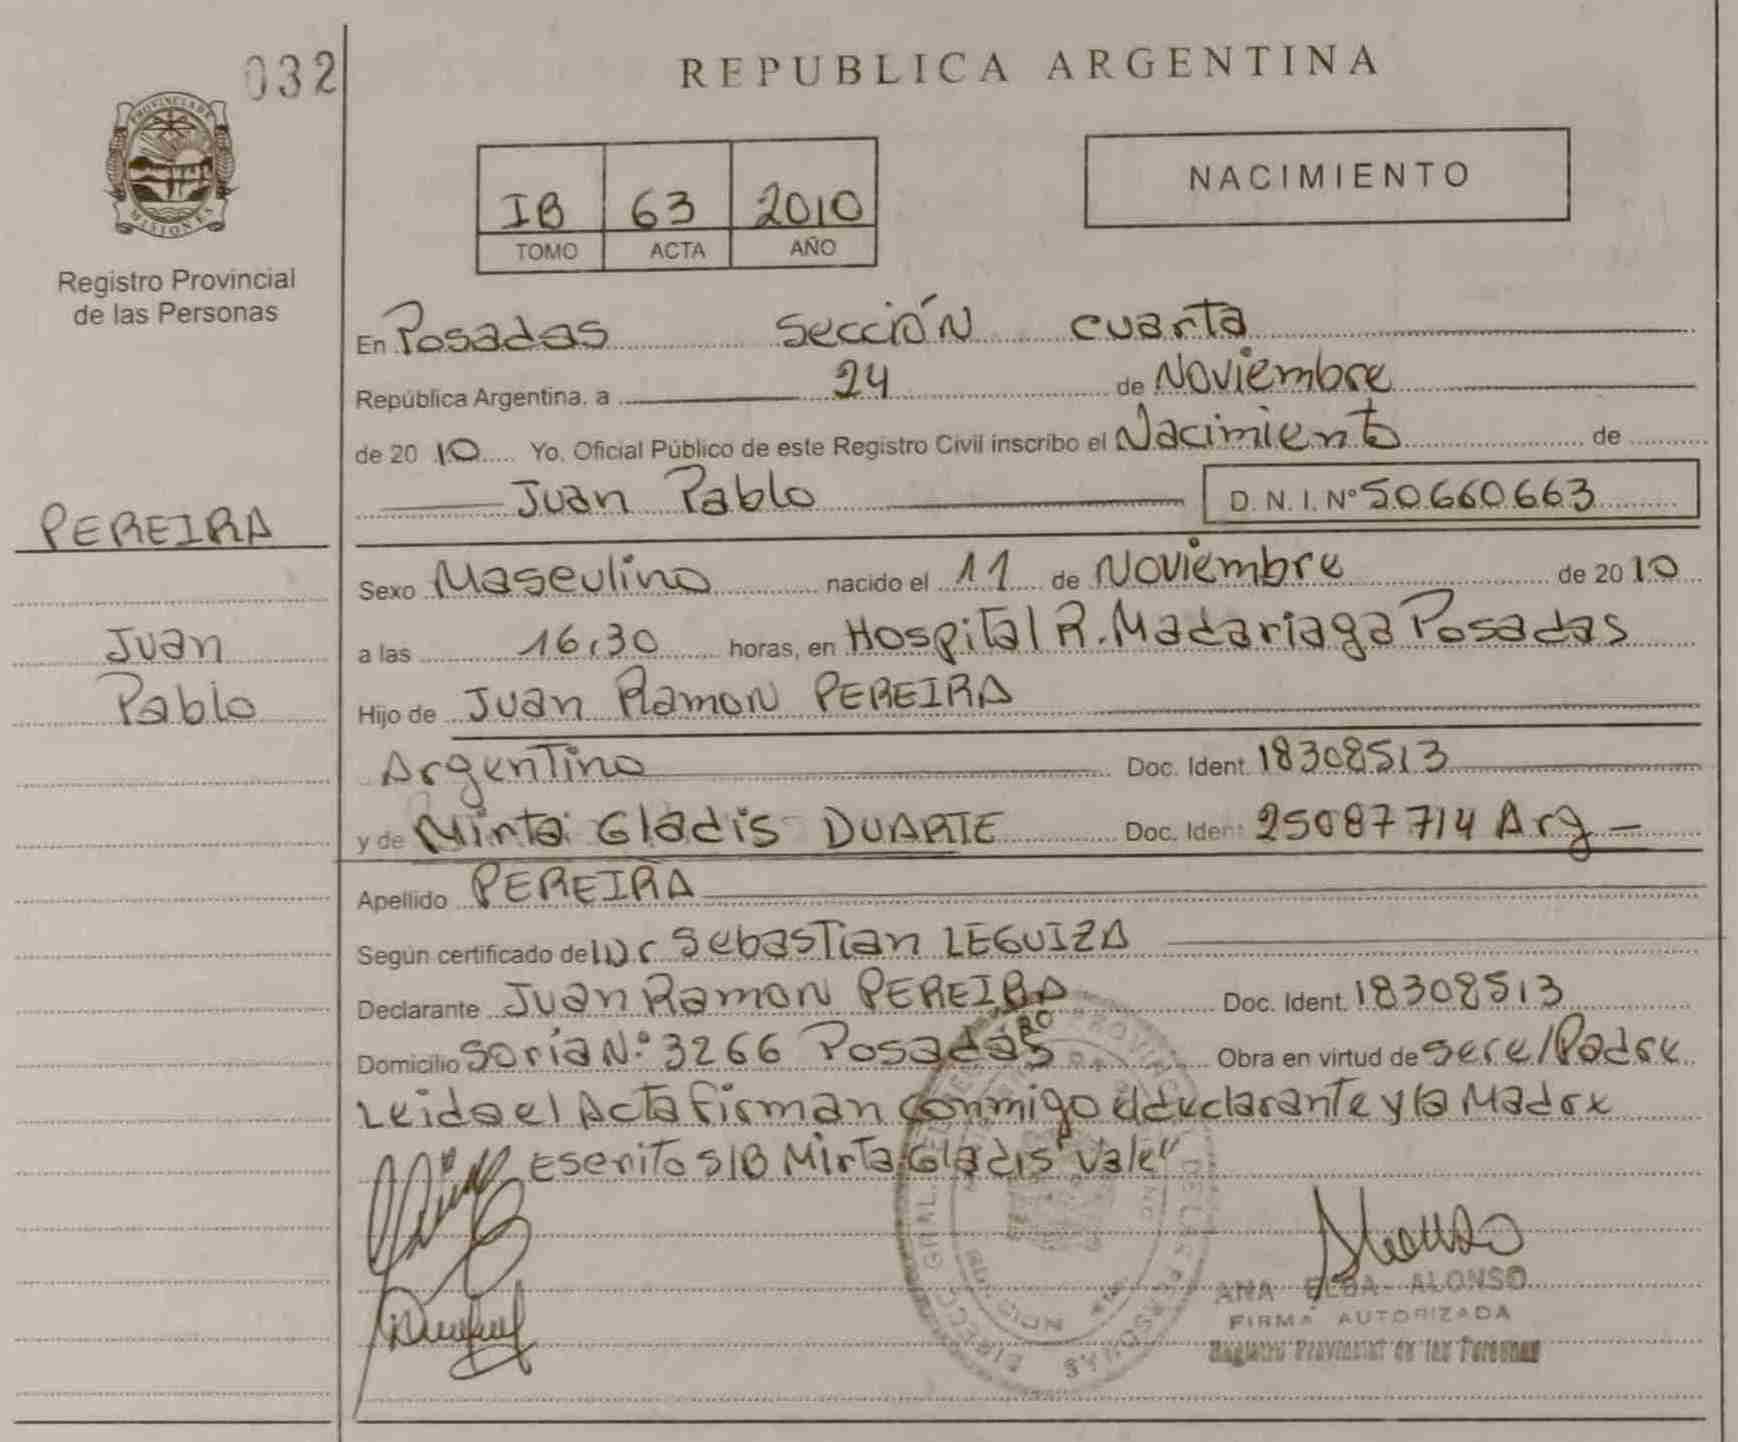 032
PROVINCIA DE
MISIONES
Registro Provincial
de las Personas
PEREIRA
Juan
Pablo
REPUBLICA ARGENTINA
IB 63 2010
TOMO ACTA AÑO
NACIMIENTO
En Posadas Sección cuarta
República Argentina, a 24 de Noviembre
de 2010 Yo, Oficial Público de este Registro Civil inscribo el Nacimiento de
Juan Pablo D. N. I. Nº 50.660.663
Sexo Masculino nacido el 11 de Noviembre de 2010
a las 16,30 horas, en Hospital R. Madariaga Posadas
Hijo de Juan Ramon PEREIRA
Argentino Doc. Ident. 18308513
y de Mirta Gladis DUARTE Doc. Ident 25087714 Arg
Apellido PEREIRA
Según certificado de Dr Sebastian LEGUIZA
Declarante Juan Ramon PEREIRA Doc. Ident. 18308513
Domicilio Soria N.º 3266 Posadas Obra en virtud de ser el Padre
Leida el Acta firman conmigo el declarante y la Madre
Escrito S/B Mirta Gladis "Vale"
ANA ELBA ALONSO
FIRMA AUTORIZADA
Registro Provincial de las Personas